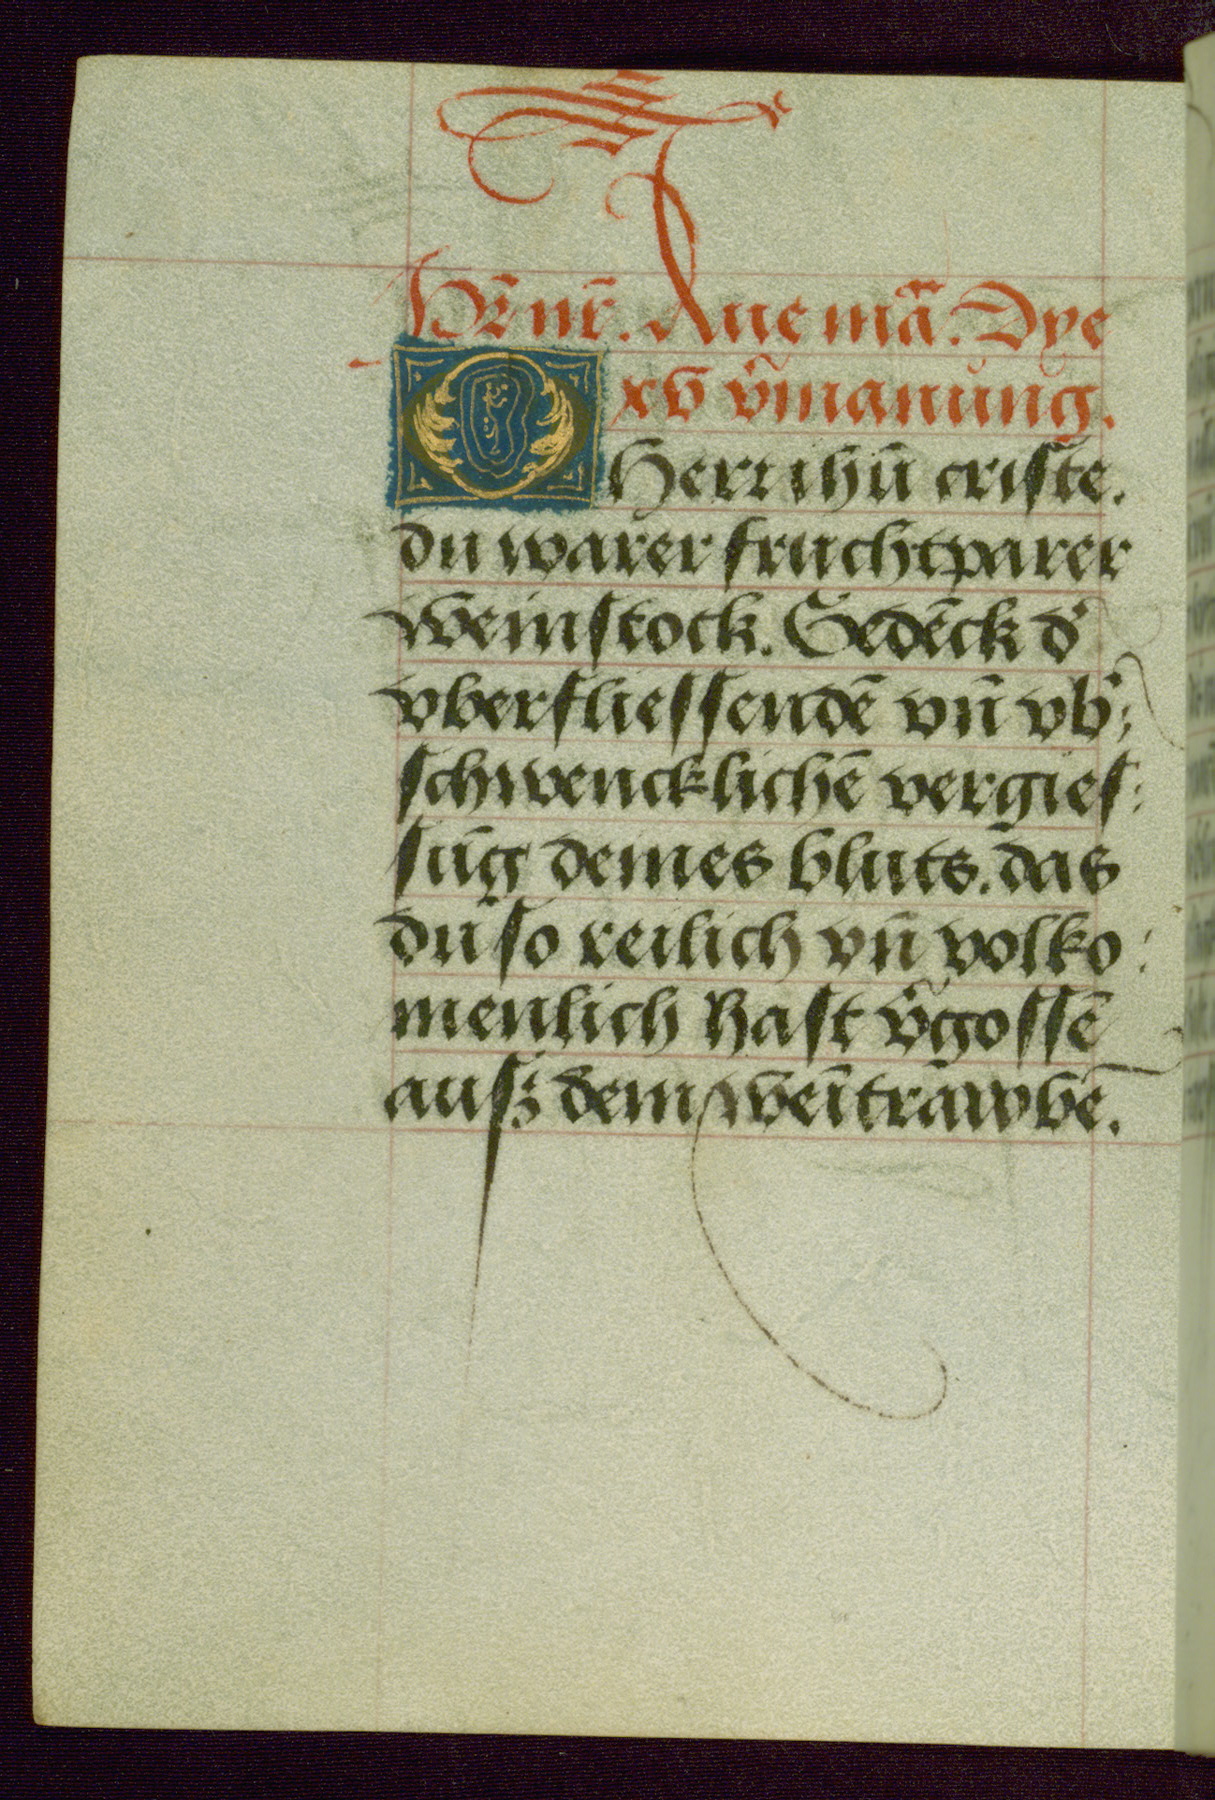 Pr̄ nr̄. Aue mā. Dye
xv v̄manūng.
O Herr ihū criſte.
du warer fruchtparer
weinſtock. Gedēck d'
vberflieſſendē vn̄ vb':
ſchwencklichē vergieſ:
ſūg deines bluts. das
du ſo reilich vn̄ volko:
menlich haſt v̄goſſē
auſz dem weītrawbē.